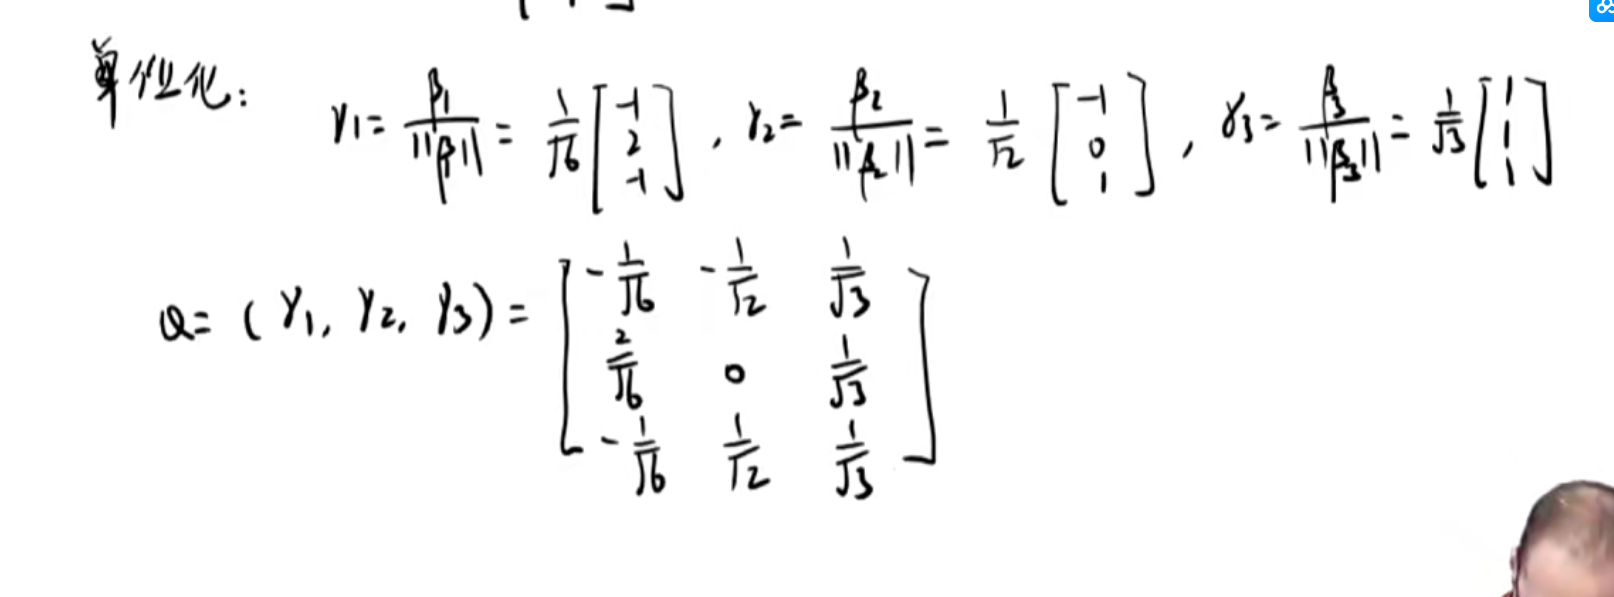 单位化: γ₁ = β₁/||β₁|| = 1/√6 [-1 2 -1], γ₂ = β₂/||β₂|| = 1/√2 [-1 0 1], γ₃ = β₃/||β₃|| = 1/√3 [1 1 1]
Q = (γ₁, γ₂, γ₃) = [-1/√6 -1/√2 1/√3
2/√6 0 1/√3
-1/√6 1/√2 1/√3]